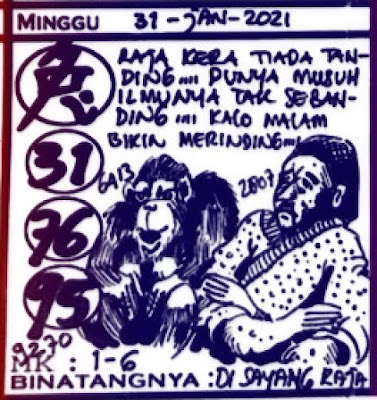 MINGGU 31-JAN-2021
RAJA KERA TIADA TAN-
DING.... DUNYA MUSUH
ILMUNYA TAK SEBAN-
DING.... KALO MALAM
BIKIN MERINDING....
31
76
95
2007 EK
9270
MK : 1-6
BINATANGNYA : DI SAYANG RAJA